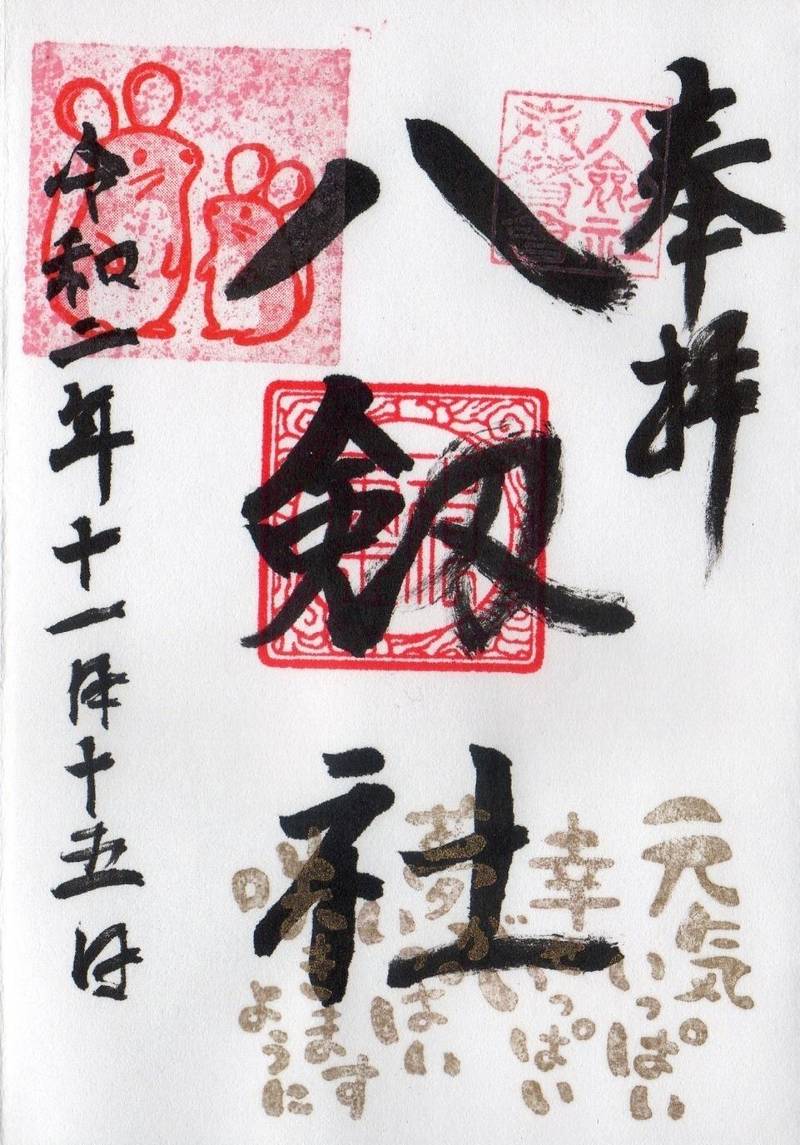 奉拝
八劔社
八劔社
令和二年十一月十五日
元気いっぱい
幸せいっぱい
夢がいっぱい
咲きます
ように